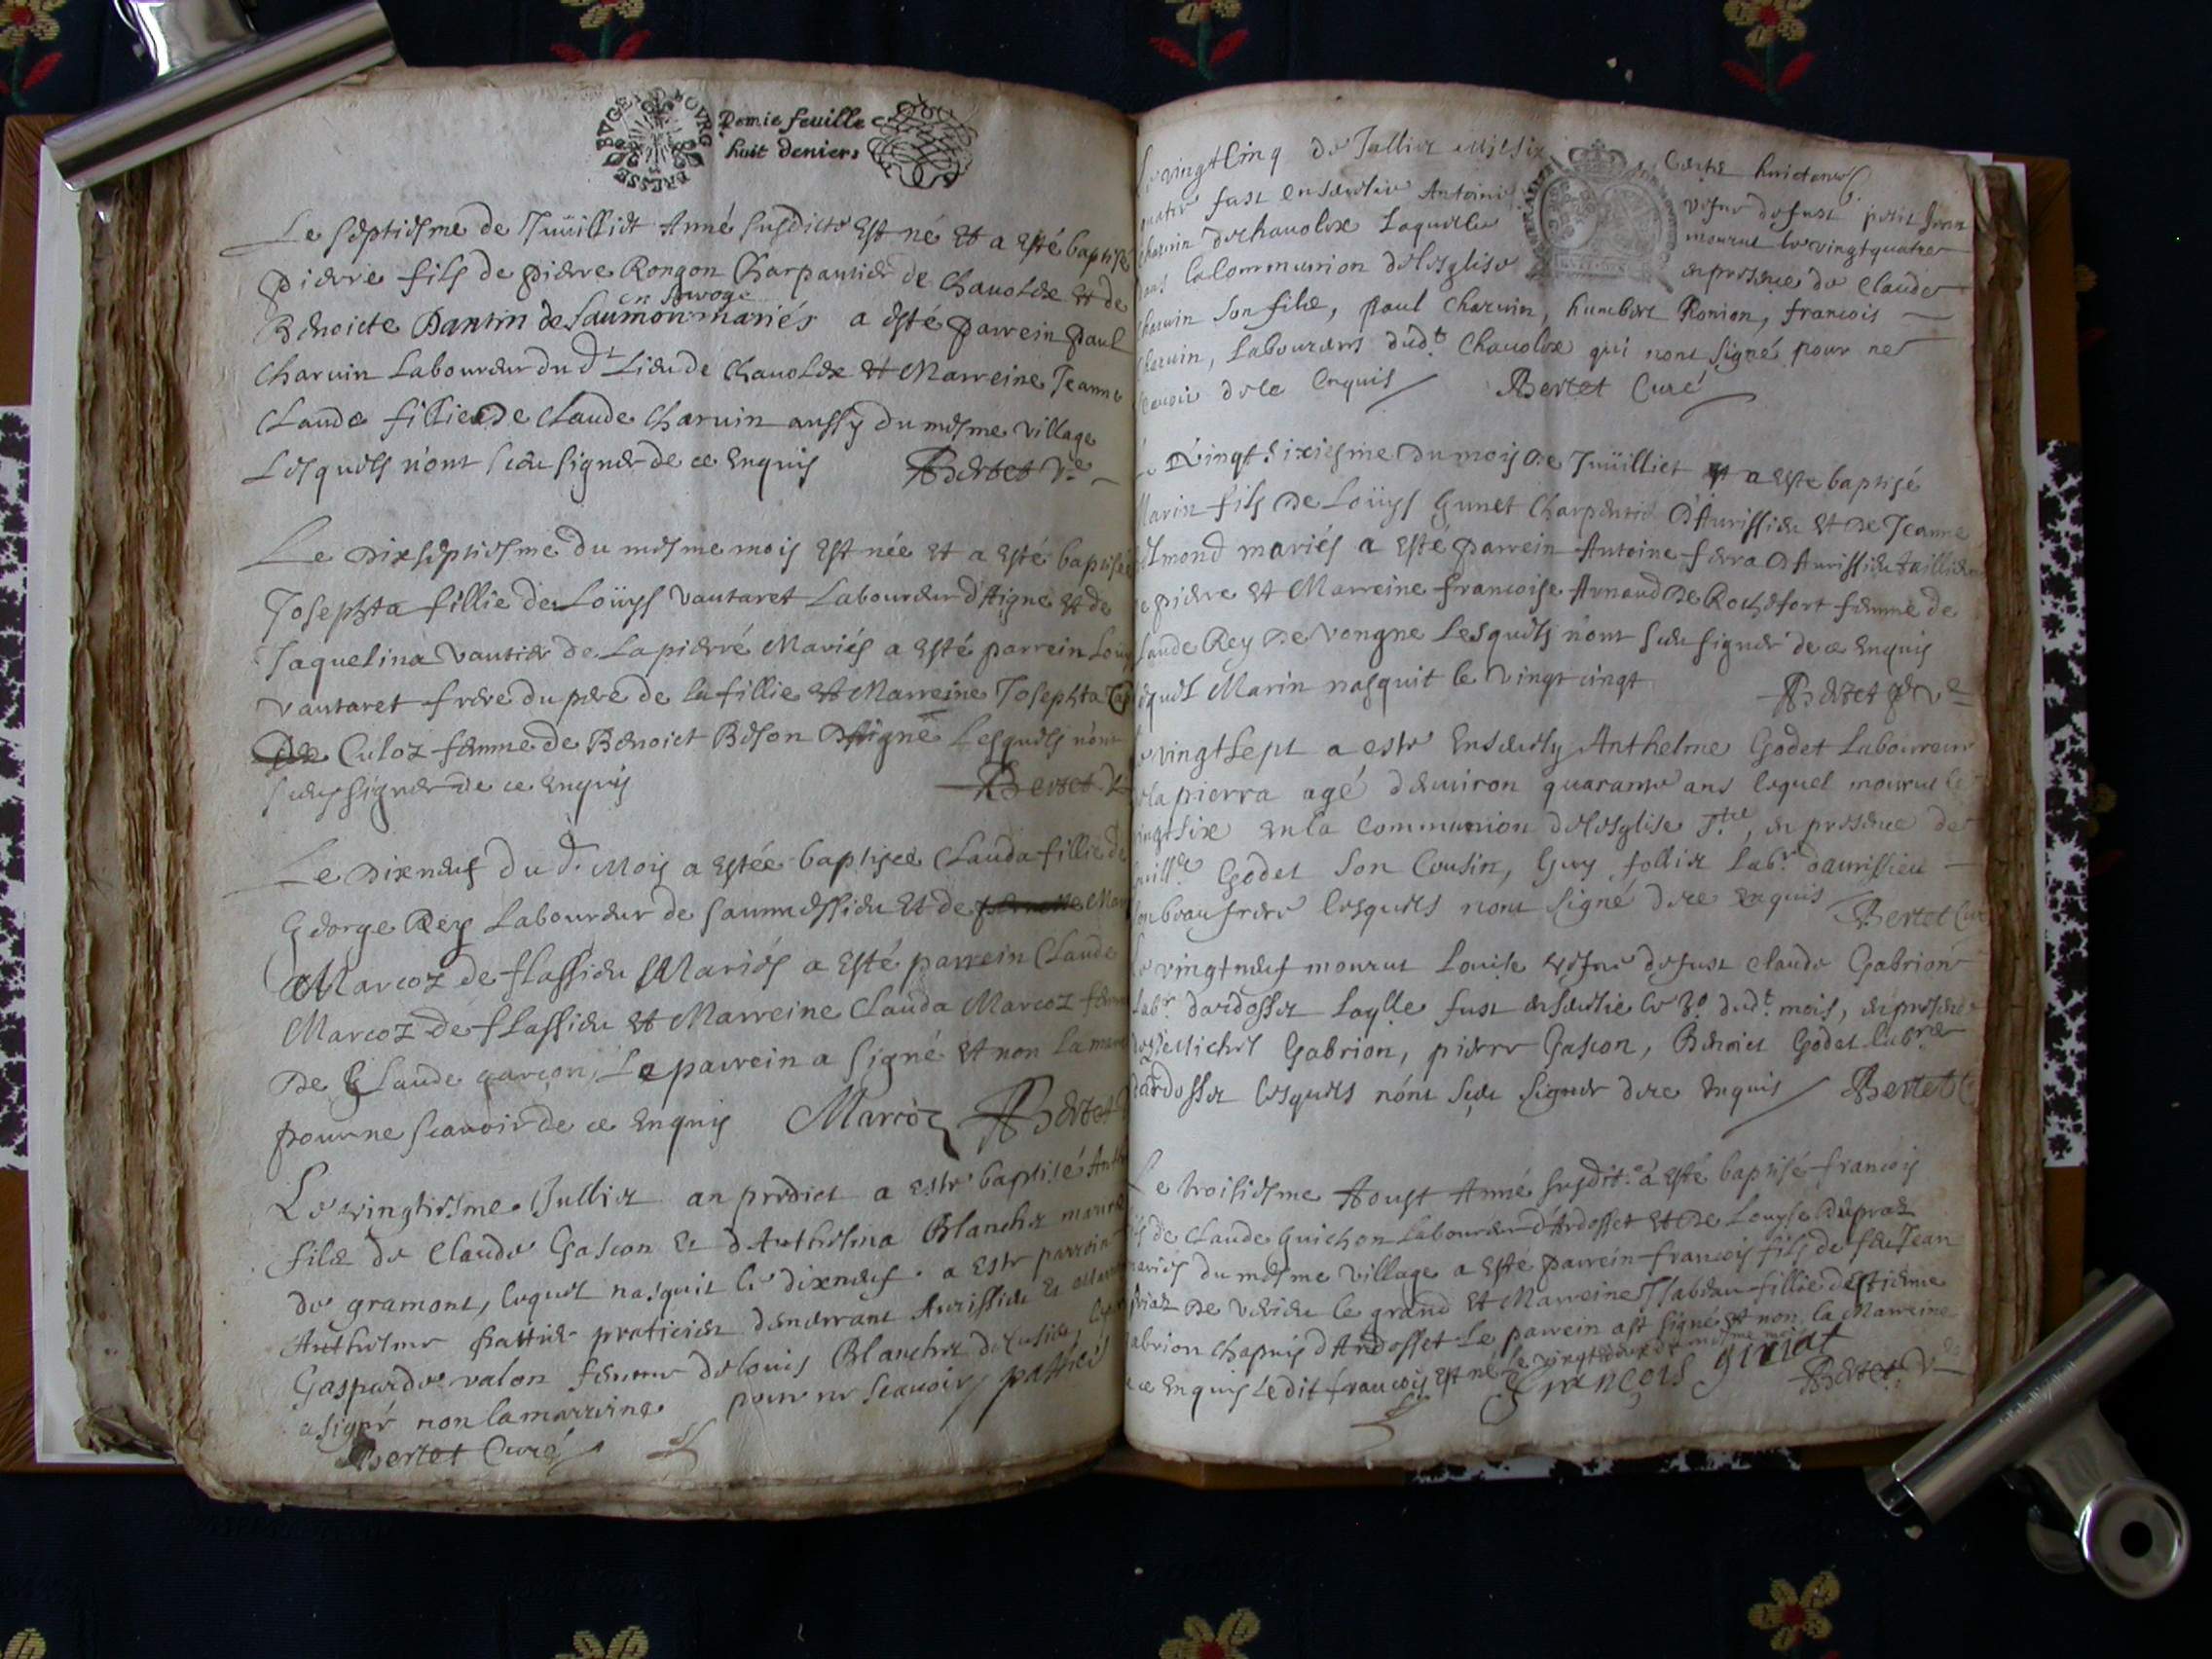 BVGEY BOVRG BRESSE
Demie feuille
huit deniers
Le septiesme de Juilliet Anné susdicte Est né Et a Esté baptisé
pierre fils de pierre Rongon Charpantier de Chauolex Et de
en sauoge
Benoicte Dantin de Saumon mariés a esté parrein paul
Charuin Laboureur du dt Lieu de Chauolex Et Marreine Jeanne
Claude fillie De Claude Charuin aussy du mesme village
Lesquels n'ont sceu signer de ce Enquis Bertet Ve
Le Dixseptiesme du mesme mois Est née Et a Esté baptisée
Josephta fillie de Loüys Vautaret Laboureur d'Aigne Et de
Jaquelina Vautier de Lapierre Mariés a Esté parrein Louys
Vautaret frere du pere de la fillie Et Marreine Josephta
Culoz femme de Benoict Beson D'Aigne Lesquels n'ont
sceu signer de ce Enquis Bertet
Le Dixneuf du d. Mois a Estée baptisée Clauda fillie de
George Rey Laboureur de Saumessieu Et de
Marcoz de flassieu Mariés a Esté parrein Claude
Marcoz de flassieu Et Marreine Clauda Marcoz femme
De Claude garcon, Le parrein a signé Et non la
pour ne scauoir de ce Enquis Marcoz Bertet
Le vingtiesme Jullier an predict a este baptisé
filz de Claude Gascon Et d'Anthelma Blanchet mariés
de gramont, lequel nasquit le dixneuf. a este parrein
Anthelme pattié praticien demeurant Aurissieu Et
Gasparde valon femme de louis Blanchet
a signé non la marreine pour ne scauoir, pattié
Bertet Curé
Le vingtCinq de Jullier
quatre fust enseuelie Antoine vefue de fust petit Jean
charuin de chauolex Laquelle mourut le vingtquatre
dans la Communion de lesglise en presence de Claude
charuin son filz, paul charuin, humbert Ronion, francois
charuin, Laboureurs dudt Chauolex qui nont signé pour ne
scauoir de ce Enquis Bertet Curé
Le Vingt sixiesme Du mois de Juilliet a Este baptisé
Marin fils De Loüys Gunet Charpentie D'Aurissieu Et De Jeanne
mariés a Esté parrein Antoine ferra D'Aurissieu
pierre Et Marreine francoise Arnaud De Rochefort femme de
Claude Rey De Vongne Lesquels n'ont sceu signer de ce Enquis
Lequel Marin nasquit le Vingt cinqt Bertet
Le vingtsept a este Enseuely Anthelme Godet Laboureur
de la pierra agé d'enuiron quarante ans lequel mourut le
vingtsix en la Communion de lesglise, en presence de
Godet son Cousin, Guy follier labr. daurissieu
son beau frere lesquels nont signé de ce enquis Bertet Curé
Le vingtneuf mourut Louise vefue de fust Claude Gabrion
Labr. dardosset Laqlle fust enseuelie le 30 dudt mois, en presence
Gabrion, pierre Gascon, Benoict Godet labrs
dardosset lesquels nont sceu signer de ce Enquis Bertet
Le troisiesme Aoust Anné susdite a Esté baptisé francois
fils de Claude Guichon Laboureur d'Ardosset Et De Louyse Dupraz
mariés du mesme village a Esté parrein francois fils de feu Jean
De Virieu le grand Et Marreine Isabeau fillie d'Estienne
Gabrion Chapuis d'Ardosset Le parrein ast signé Et non la Marreine
de ce Enquis Ledit francois Est né le vingt du mesme mois
François giriat Bertet